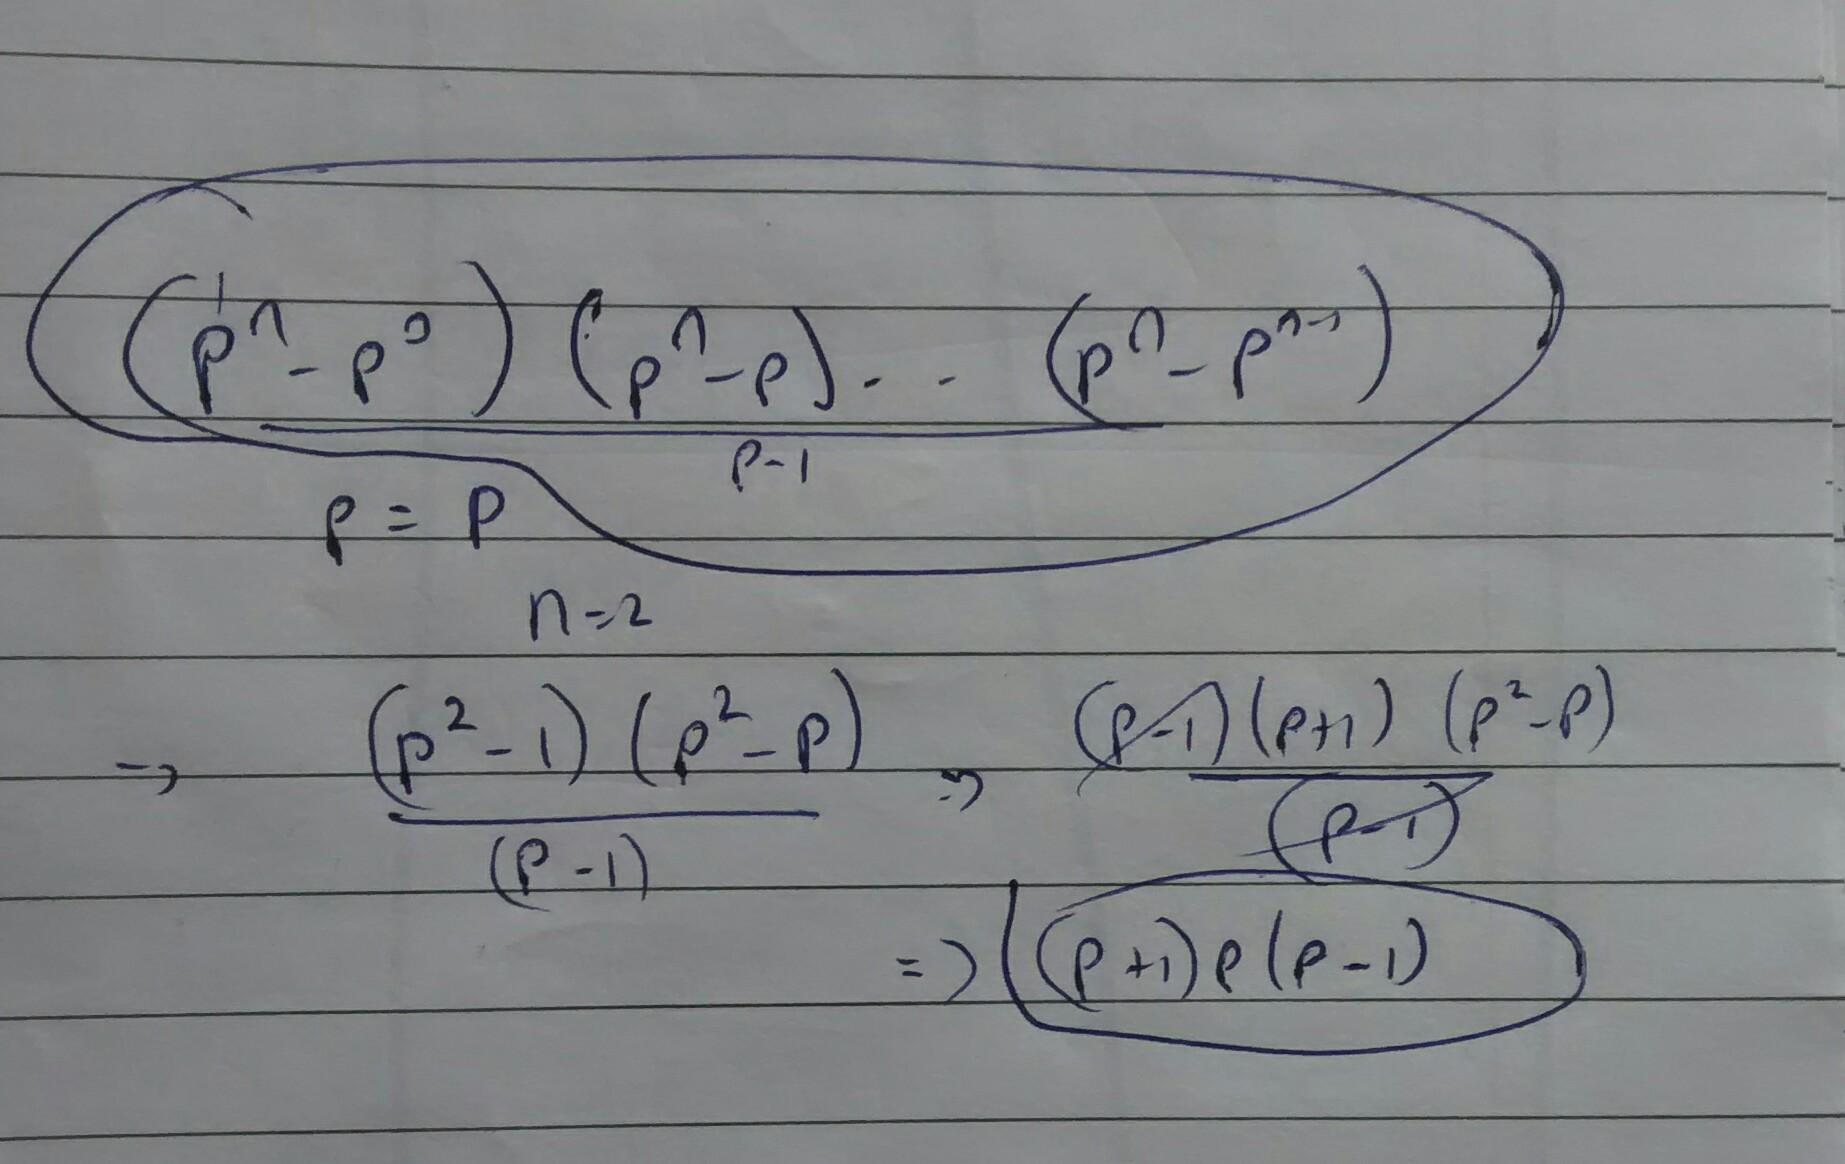 (pⁿ - p⁰) (pⁿ - p) . . . (pⁿ - pⁿ⁻¹)
p-1
p = p
n=2
→ (p² - 1) (p² - p) ⇒ (p-1) (p+1) (p² - p)
(p-1) (p-1)
⇒ (p+1) p (p-1)